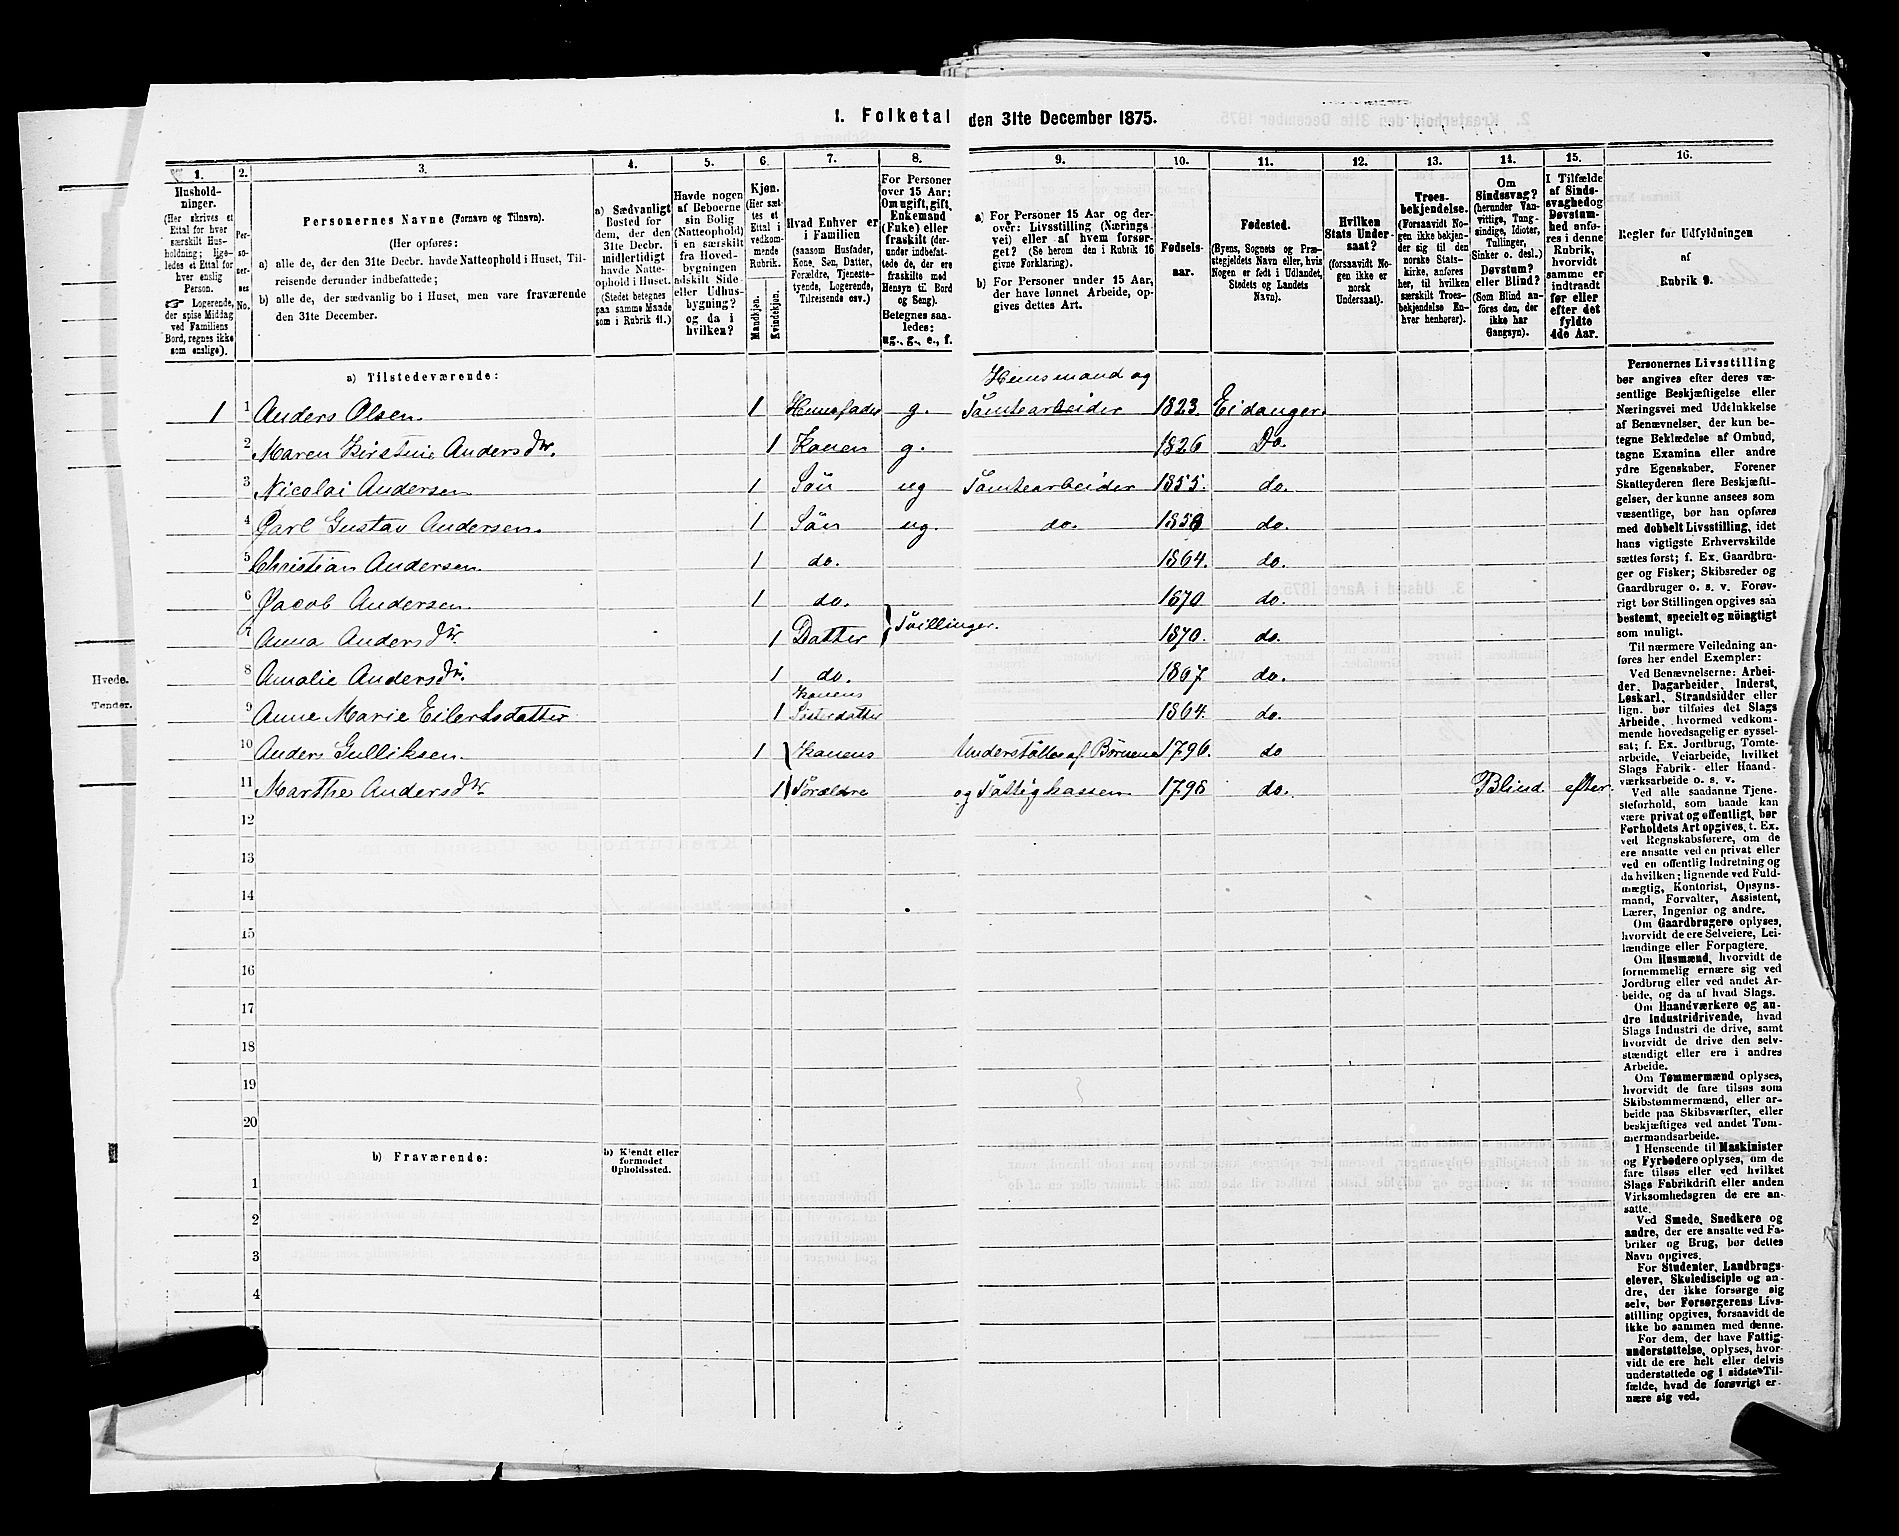 1. Folketal den 31te December 1875.
1. 2. 3. 4. 5. 6. 7. 8. 9. 10. 11. 12. 13. 14. 15. 16.
Hushold-
ninger.
(Her skrives et
Ettal for hver
særskilt Hus-
holdning; lige-
ledes et Ettal for
enslig Person.
☞ Logerende,
der spise Middag
ved Familiens
Bord, regnes ikke
som enslige).
Per-
so-
ner-
nes
No.
Personernes Navne (Fornavn og Tilnavn).
(Her opføres:
a) alle de, der den 31te Decbr. havde Natteophold i Huset, Til-
reisende derunder indbefattede;
b) alle de, der sædvanlig bo i Huset, men vare fraværende
den 31te December.
a) Sædvanligt
Bosted for
dem, der den
31te Decbr.
midlertidigt
havde Natte-
ophold i Huset.
(Stedet betegnes
paa samme Maade
som i Rubrik 11.)
Havde nogen
af Beboerne
sin Bolig
(Natteophold)
i en særskilt
fra Hoved-
bygningen
adskilt Side-
eller Udhus-
bygning?
og da i
hvilken?
Kjøn.
(Her sæt-
tes et
Ettal i
vedkom-
mende
Rubrik.
Mandkjøn.
Kvindekjøn.
Hvad Enhver er
i Familien
(saasom Husfader,
Kone, Søn, Datter,
Forældre, Tjeneste-
tyende, Logerende,
Tilreisende osv.)
For Personer
over 15 Aar:
Om ugift, gift,
Enkemand
(Enke) eller
fraskilt (der-
under indbefat-
tede de, der ere
fraskilte med
Hensyn til Bord
og Seng).
Betegnes saa-
ledes:
ug., g., e., f.
a) For Personer 15 Aar og der-
over: Livsstilling (Nærings-
vei) eller af hvem forsør-
get? (Se herom den i Rubrik 16
givne Forklaring).
b) For Personer under 15 Aar,
der have lønnet Arbeide, op-
gives dettes Art.
Fødsels-
aar.
Fødested.
(Byens, Sognets og Præ-
stegjeldets Navn eller, hvis
Nogen er født i Udlandet,
Stedets og Landets
Navn).
Hvilken
Stats Under-
saat?
(forsaavidt No-
gen ikke er
norsk
Undersaat).
Troes-
bekjendelse.
(Forsaavidt No-
gen ikke bekjen-
der sig til den
norske Stats-
kirke, anføres
her, til hvilken
særskilt Troes-
bekjendelse En-
hver henhører).
Om
Sindssvag?
(herunder Van-
vittige, Tung-
sindige, Idioter,
Tullinger,
Sinker o. desl.)
Døvstum?
eller Blind?
(Som Blind an-
føres den, der
ikke har
Gangsyn).
I Tilfælde
af Sinds-
svaghed og
Døvstum-
hed anfø-
res i denne
Rubrik,
hvorvidt
samme er
indtraadt
før eller
efter det
fyldte
4de Aar.
Regler for Udfyldningen
af
Rubrik 9.
a) Tilstedeværende:
Huusmand og
1 1 Anders Olsen. 1 Huusfader g. Tomtearbeider 1823. Eidanger.
2 Maren Kirstine Andersdtr. 1 Konen g. 1826 Do.
3 Nicolai Andersen 1 Søn ug Tomtearbeider 1855. do.
4 Carl Gustav Andersen. 1 Søn ug. do. 1858 do.
5 Christian Andersen. 1 do. 1864. do.
6 Jacob Andersen. 1 do. 1870 do.
Tvillinger.
7 Anna Andersdtr. 1 Datter 1870. do.
8 Amalie Andersdtr. 1 do. 1867 do.
Konens
9 Anne Marie Eilertsdatter 1 Sisterdatter 1864. do.
10 Anders Gulliksen. 1 Konens Understøttes af Børnene 1796. do
11 Marthe Andersdtr. 1 Forældre og Fattigkassen 1798 do. Blind efter.
12
13
14
15
16
17
18
19
20
b) Fraværende:
b) Kjendt eller
formodet
Opholdssted.
1
2
3
4
Personernes Livsstilling
bør angives efter deres væ-
sentlige Beskjæftigelse eller
Næringsvei med Udelukkelse
af Benævnelser, der kun be-
tegne Beklædelse af Ombud,
tagne Examina eller andre
ydre Egenskaber. Forener
Skatteyderen flere Beskjæfti-
gelser, der kunne ansees som
væsentlige, bør han opføres
med dobbelt Livsstilling, idet
hans vigtigste Erhvervskilde
sættes først; f. Ex. Gaardbru-
ger og Fisker; Skibsreder og
Gaardbruger o. s. v. Forøv-
rigt bør Stillingen opgives saa
bestemt, specielt og nöiagtigt
som muligt.
Til nærmere Veiledning an-
føres her endel Exempler:
Ved Benævnelserne: Arbei-
der, Dagarbeider, Inderst,
Løskarl, Strandsidder eller
lign. bør tilføies det Slags
Arbeide, hvormed vedkom-
mende hovedsagelig er syssel-
sat; f. Ex. Jordbrug, Tomte-
arbeide, Veiarbeide, hvilket
Slags Fabrik- eller Haand-
værksarbeide o. s. v.
Ved alle saadanne Tjene-
steforhold, som baade kan
være privat og offentligt, bør
Forholdets Art opgives, t. Ex.
ved Regnskabsførere, om de
ere ansatte ved en privat eller
ved en offentlig Indretning og
da hvilken; lignende ved Fuld-
mægtig, Kontorist, Opsyns-
mand, Forvalter, Assistent,
Lærer, Ingeniør og andre.
Om Gaardbrugere oplyses,
hvorvidt de ere Selveiere, Lei-
lændinge eller Forpagtere.
Om Husmænd, hvorvidt de
fornemmelig ernære sig ved
Jordbrug eller ved andet Ar-
beide, og da af hvad Slags.
Om Haandværkere og an-
dre Industridrivende, hvad
Slags Industri de drive, samt
hvorvidt de drive den selv-
stændigt eller ere i andres
Arbeide.
Om Tømmermænd oplyses,
hvorvidt de fare tilsøs som
Skibstømmermænd, eller ar-
beide paa Skibsværfter, eller
beskjæftiges ved andet Tøm-
mermandsarbeide.
I Henseende til Maskinister
og Fyrbødere oplyses, om de
fare tilsøs eller ved hvilket
Slags Fabrikdrift eller anden
Virksomhedsgren de ere an-
satte.
Ved Smede, Snedkere og
andre, der ere ansatte ved Fa-
briker og Brug, bør dettes
Navn opgives.
For Studenter, Landbrugs-
elever, Skoledisciple og an-
dre, der ikke forsørge sig
selv, bør Forsørgerens Livs-
stilling opgives, forsaavidt de
ikke bo sammen med denne.
For dem, der have Fattig-
understøttelse, oplyses, hvor-
vidt de ere helt eller delvis
understøttede og i sidste Til-
fælde, hvad de forøvrigt er-
nære sig ved.
Hvede.
Tønder.